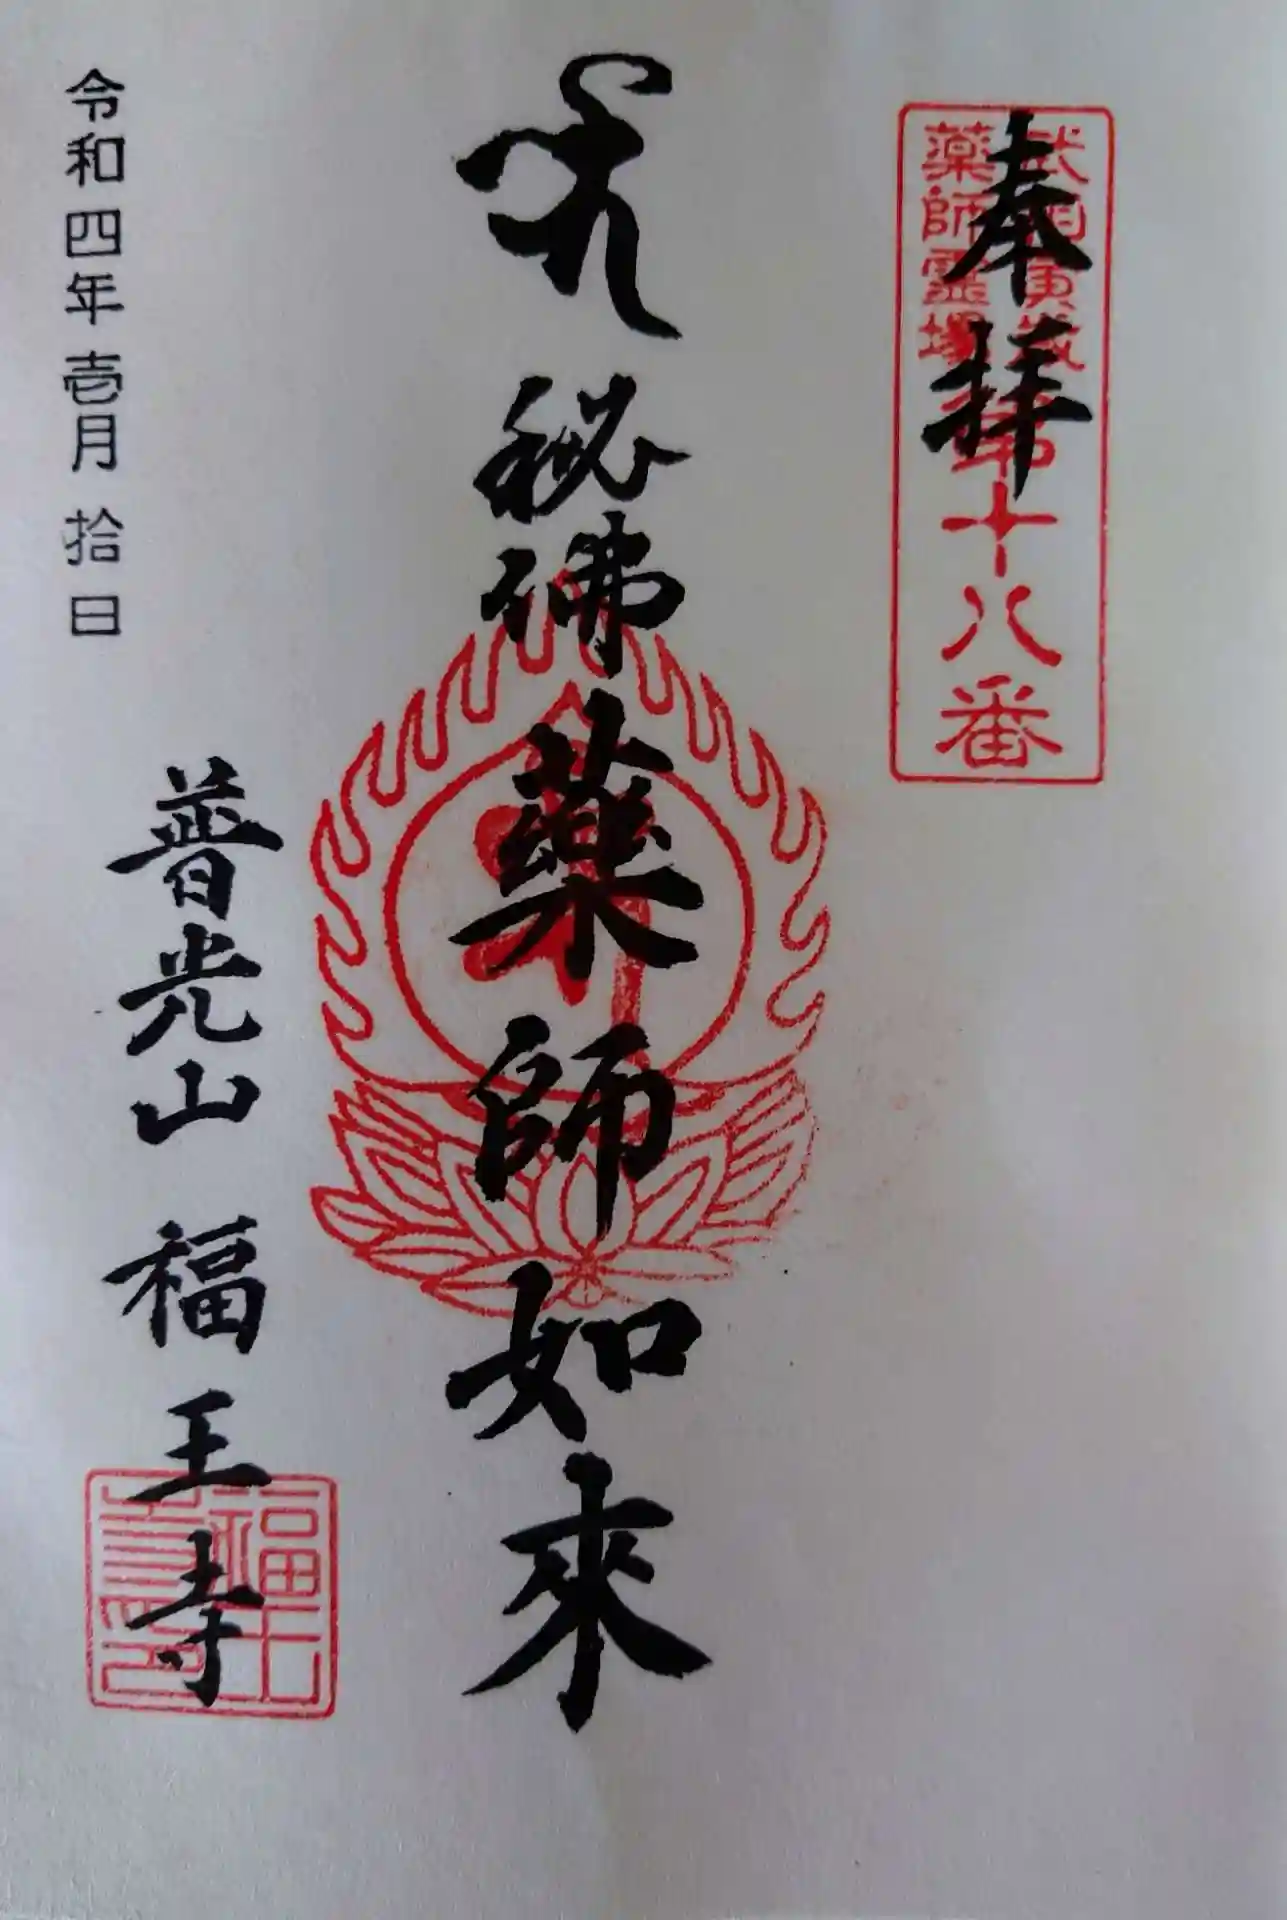 奉拝
武相寅歳
薬師霊場
第十八番
秘佛薬師如來
令和四年壱月拾日
普光山福王寺
福王
寺印